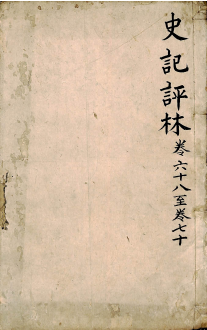 史記評林 卷六十八至卷七十